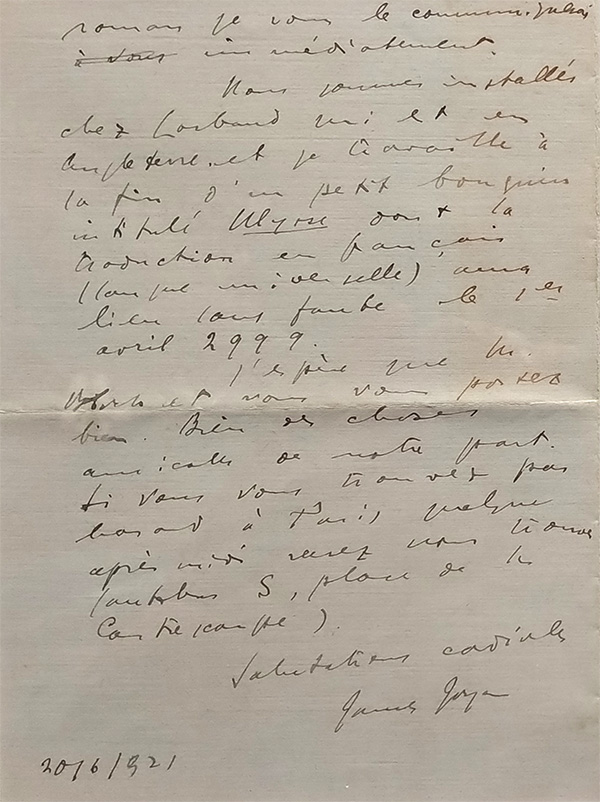 roman je vous le communiquerai
à vous immédiatement.
Nous sommes installés
chez Larbaud qui est en
Angleterre et je travaille à
la fin d'un petit bouquin
intitulé Ulysse dont la
traduction en français
(langue universelle) aura
lieu sans faute le 1er
avril 2999.
J'espère que M.
et vous vous portez
bien. Bien des choses
amicales de notre part.
Si vous vous trouvez par
hasard à Paris quelque
après midi venez nous trouver
(autobus S, place de la
Contrescarpe).
Salutations cordiales
James Joyce
20/6/921